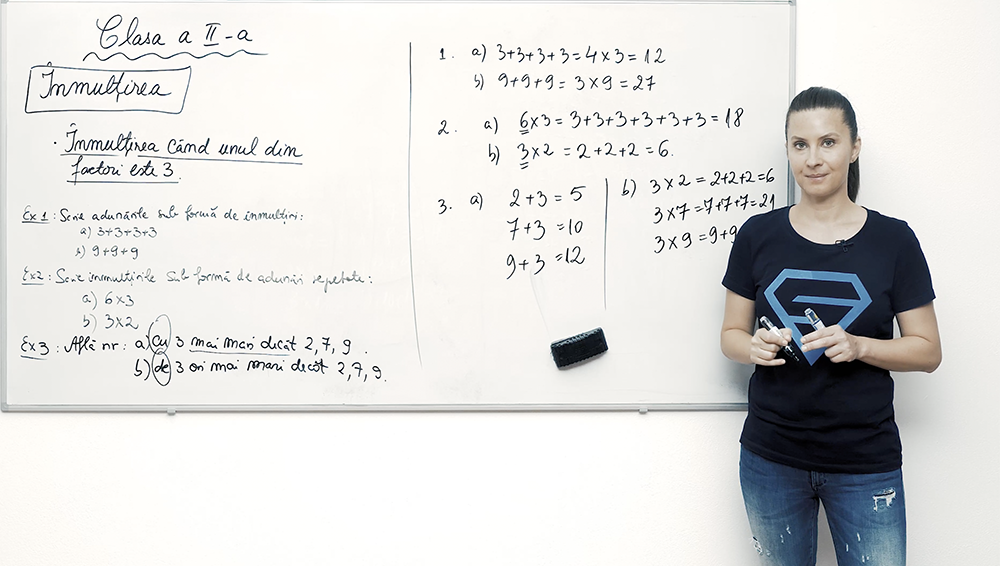 Clasa a II-a
Înmulțirea
· Înmulțirea când unul din
factori este 3.
Ex 1: Scrie adunările sub formă de înmulțiri:
a) 3+3+3+3
b) 9+9+9
Ex2: Scrie înmulțirile sub formă de adunări repetate:
a) 6×3
b) 3×2
Ex3: Află nr: a) cu 3 mai mari decât 2, 7, 9.
b) de 3 ori mai mari decât 2, 7, 9.
1. a) 3+3+3+3=4×3=12
b) 9+9+9=3×9=27
2. a) 6×3=3+3+3+3+3+3=18
b) 3×2=2+2+2=6.
3. a) 2+3=5
7+3=10
9+3=12
b) 3×2=2+2+2=6
3×7=7+7+7=21
3×9=9+9